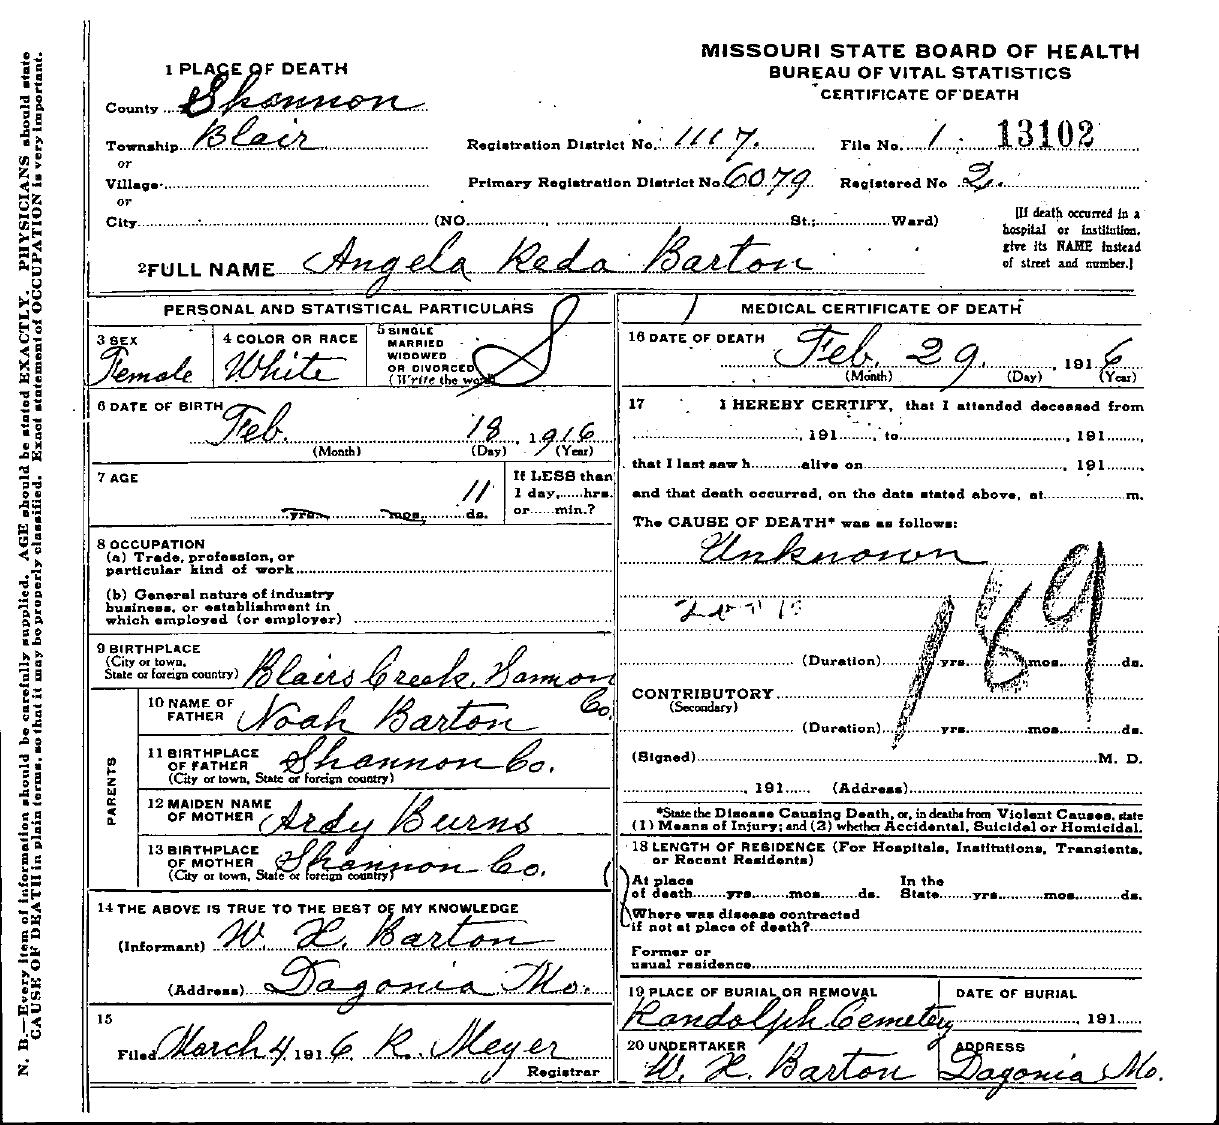 MISSOURI STATE BOARD OF HEALTH
BUREAU OF VITAL STATISTICS
CERTIFICATE OF DEATH
1 PLACE OF DEATH
County Shannon
Township Blair
or
Village
or
City (NO. St.; Ward)
Registration District No. 1117. File No. 1 13102
Primary Registration District No. 6079 Registered No 2.
[If death occurred in a
hospital or institution,
give its NAME instead
of street and number.]
2 FULL NAME Angela Reda Barton
PERSONAL AND STATISTICAL PARTICULARS
3 SEX Female
4 COLOR OR RACE White
5 SINGLE
MARRIED
WIDOWED
OR DIVORCED
(Write the word
6 DATE OF BIRTH
Feb. 18, 1916
(Month) (Day) (Year)
7 AGE
11
yrs. mos. ds.
If LESS than
1 day, hrs.
or min.?
8 OCCUPATION
(a) Trade, profession, or
particular kind of work
(b) General nature of industry
business, or establishment in
which employed (or employer)
9 BIRTHPLACE
(City or town,
State or foreign country) Blairs Creek, Sannon Co.
PARENTS
10 NAME OF
FATHER Noah Barton
11 BIRTHPLACE
OF FATHER Shannon Co.
(City or town, State or foreign country)
12 MAIDEN NAME
OF MOTHER Ardy Burns
13 BIRTHPLACE
OF MOTHER Shannon Co.
(City or town, State or foreign country)
14 THE ABOVE IS TRUE TO THE BEST OF MY KNOWLEDGE
(Informant) W. H. Barton
(Address) Dagonia Mo.
15
Filed March 4, 1916 R Meyer
Registrar
MEDICAL CERTIFICATE OF DEATH
16 DATE OF DEATH Feb. 29. 1916
(Month) (Day) (Year)
17 I HEREBY CERTIFY, that I attended deceased from
, 191 , to , 191 ,
that I last saw h alive on , 191 ,
and that death occurred, on the date stated above, at m.
The CAUSE OF DEATH* was as follows:
Unknown
189
(Duration) yrs. mos. ds.
CONTRIBUTORY
(Secondary)
(Duration) yrs. mos. ds.
(Signed) M. D.
, 191 (Address)
*State the Disease Causing Death, or, in deaths from Violent Causes, state
(1) Means of Injury; and (2) whether Accidental, Suicidal or Homicidal.
18 LENGTH OF RESIDENCE (For Hospitals, Institutions, Transients,
or Recent Residents)
At place In the
of death yrs. mos. ds. State yrs. mos. ds.
Where was disease contracted
if not at place of death?
Former or
usual residence
19 PLACE OF BURIAL OR REMOVAL DATE OF BURIAL
Randolph Cemetery , 191
20 UNDERTAKER ADDRESS
W. H. Barton Dagonia Mo.
N. B.—Every item of information should be carefully supplied. AGE should be stated EXACTLY. PHYSICIANS should state
CAUSE OF DEATH in plain terms, so that it may be properly classified. Exact statement of OCCUPATION is very important.